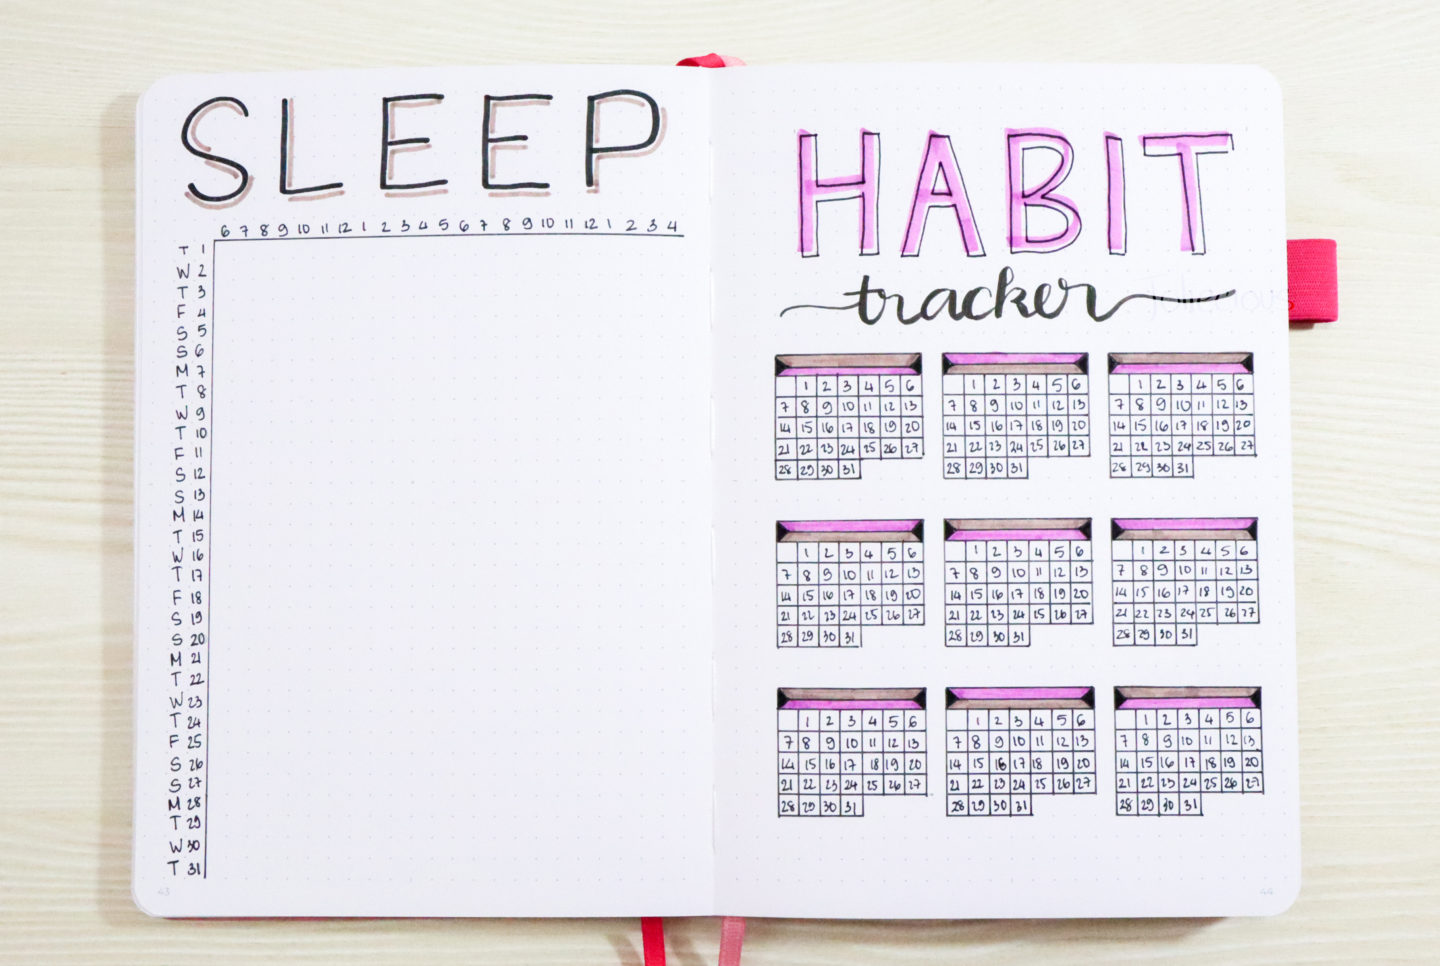 SLEEP
6 7 8 9 10 11 12 1 2 3 4 5 6 7 8 9 10 11 12 1 2 3 4
T 1
W 2
T 3
F 4
S 5
S 6
M 7
T 8
W 9
T 10
F 11
S 12
S 13
M 14
T 15
W 16
T 17
F 18
S 19
S 20
M 21
T 22
W 23
T 24
F 25
S 26
S 27
M 28
T 29
W 30
T 31
43
HABIT
tracker
1 2 3 4 5 6
7 8 9 10 11 12 13
14 15 16 17 18 19 20
21 22 23 24 25 26 27
28 29 30 31
1 2 3 4 5 6
7 8 9 10 11 12 13
14 15 16 17 18 19 20
21 22 23 24 25 26 27
28 29 30 31
1 2 3 4 5 6
7 8 9 10 11 12 13
14 15 16 17 18 19 20
21 22 23 24 25 26 27
28 29 30 31
1 2 3 4 5 6
7 8 9 10 11 12 13
14 15 16 17 18 19 20
21 22 23 24 25 26 27
28 29 30 31
1 2 3 4 5 6
7 8 9 10 11 12 13
14 15 16 17 18 19 20
21 22 23 24 25 26 27
28 29 30 31
1 2 3 4 5 6
7 8 9 10 11 12 13
14 15 16 17 18 19 20
21 22 23 24 25 26 27
28 29 30 31
1 2 3 4 5 6
7 8 9 10 11 12 13
14 15 16 17 18 19 20
21 22 23 24 25 26 27
28 29 30 31
1 2 3 4 5 6
7 8 9 10 11 12 13
14 15 16 17 18 19 20
21 22 23 24 25 26 27
28 29 30 31
1 2 3 4 5 6
7 8 9 10 11 12 13
14 15 16 17 18 19 20
21 22 23 24 25 26 27
28 29 30 31
44